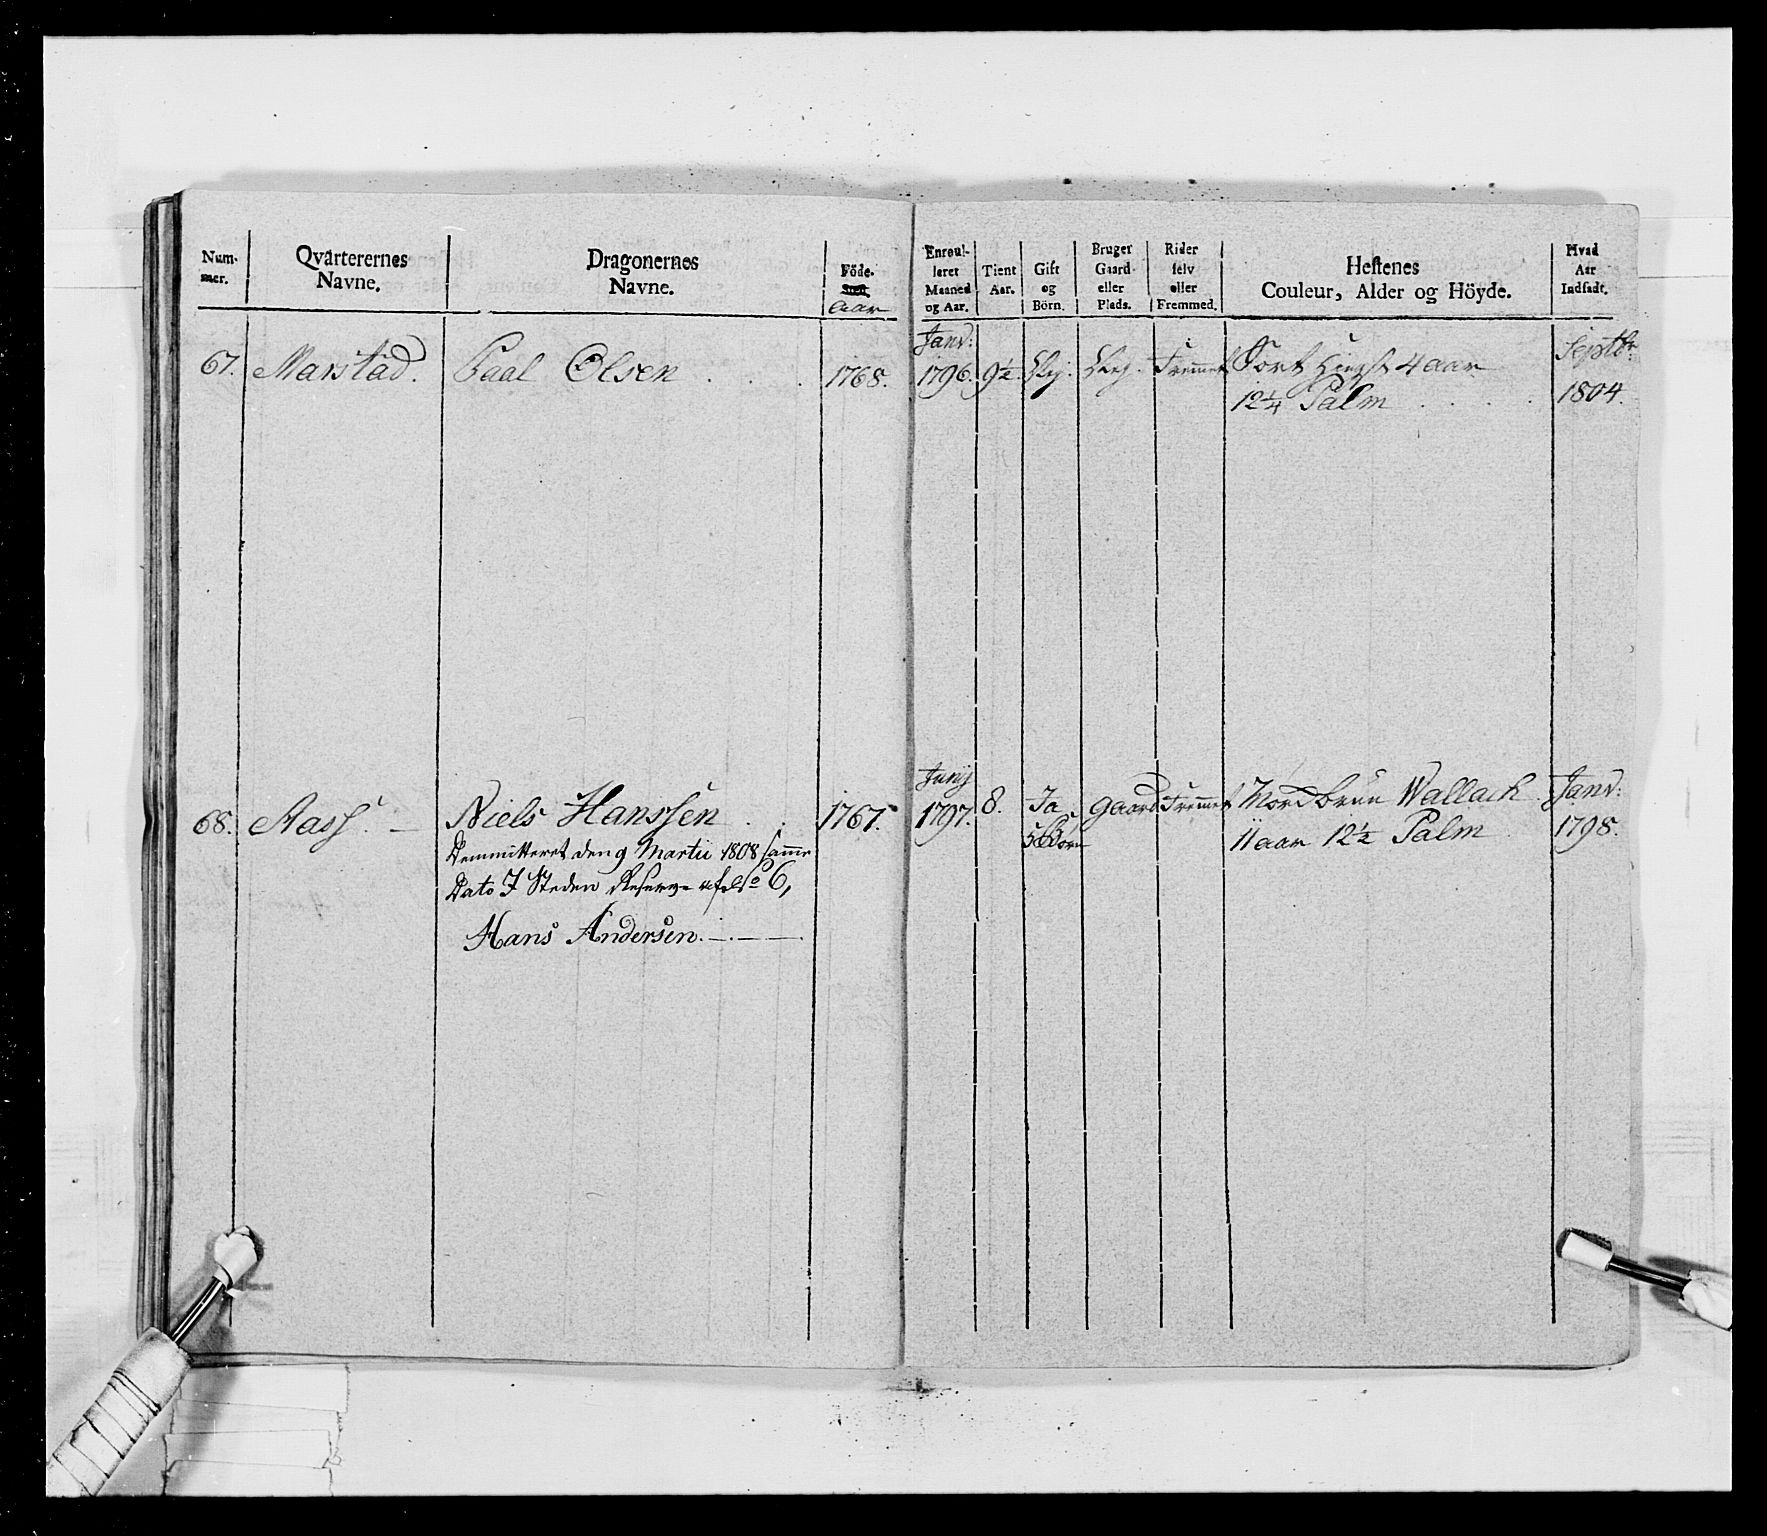 Num-
mer.
Qvarterernes
Navne.
Dragonernes
Navne.
Föde-
Sted.
Aar
Enroul-
leret
Maaned
og Aar.
Tient
Aar.
Gift
og
Börn.
Bruger
Gaard
eller
Plads.
Rider
selv
eller
Fremmed.
Hestenes
Couleur, Alder og Höyde.
Hvad
Aar
Indsadt.
67. Marstad. Paal Olsen 1768.
Janv:
1796. 9½ Ney. Ney. Fremmet Sort Hingst 4 aar
12¼ Palm
Septbr
1804.
68. Aass. Niels Hanssen 1767.
Demmitteret den 9 Martii 1808 samme
Dato I Steden Reserve No 6,
Hans Andersen.
Junij
1797. 8. Ja
5 Börn
Gaard Fremmet Mordbrun Wallach
11 aar 12½ Palm
Janv:
1798.